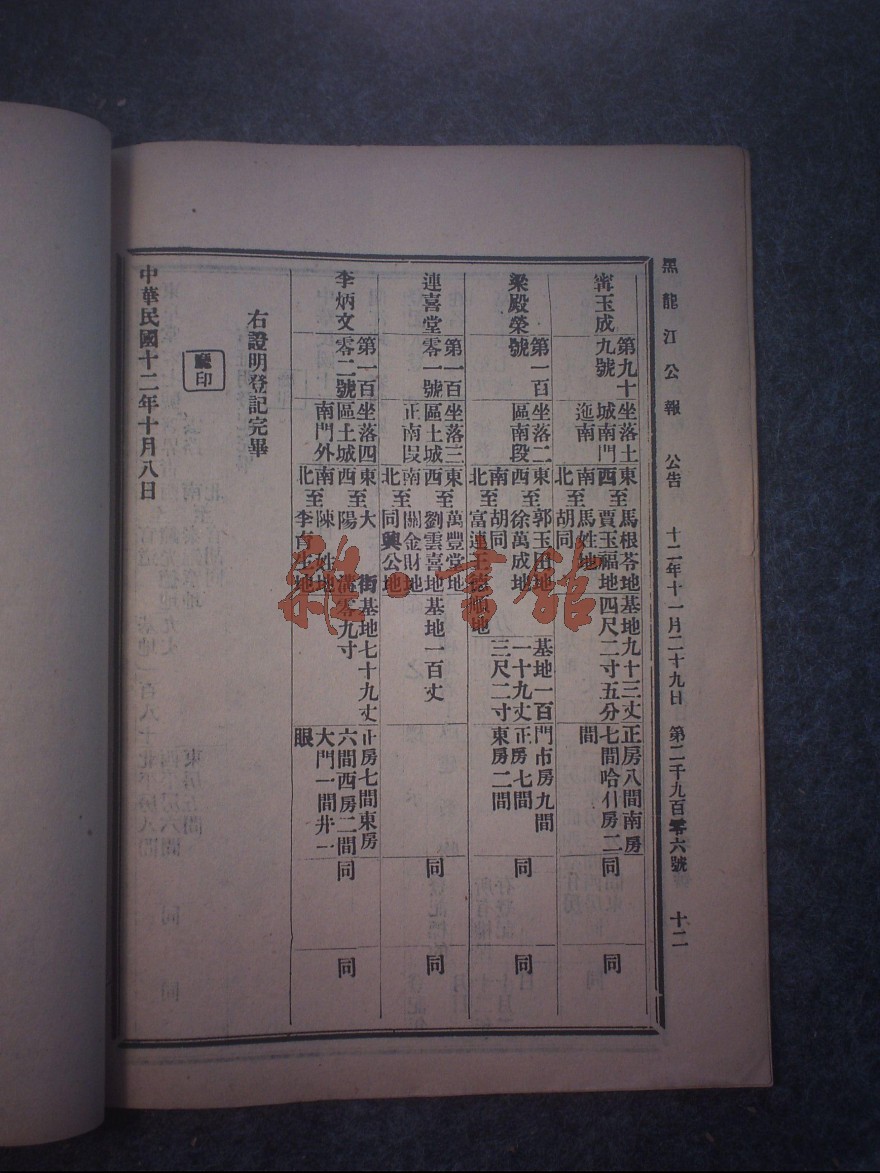 黑龍江公報 公告 十二年十一月二十九日 第二千九百零六號 十二
甯玉成
第九十
九號
坐落土
城南門
迤南
東 馬根苓地
西至 賈玉福地
南 馬姓地
北至 胡同
基地九十三丈
四尺二寸五分
正房八間南房
七間哈什房二
間
同
同
梁殿榮
第一百
號
坐落二
區南段
東 郭玉田地
西至 徐萬成地
南 胡同
北至
基地一百
一十九丈
三尺二寸
門市房九間
正房七間
東房二間
同
同
連喜堂
第一百
零一號
坐落三
區土城
正南段
東 萬豐堂地
西至 劉雲喜地
南 關金財地
北至 同興公地
基地一百丈
同
同
李炳文
第一百
零二號
坐落四
區土城
南門外
東 大街
西至 陽溝
南 陳姓地
北至
基地七十九丈
零九寸
正房七間東房
六間西房二間
大門一間井一
眼
同
同
右證明登記完畢
廳印
中華民國十二年十月八日
雜·書館